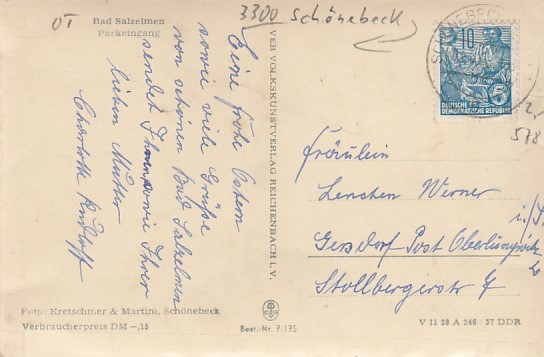 ÖT
Bad Salzelmen
Parkeingang
3300 Schönebeck
Eine frohe Ostern
sowie viele Grüße
von schönen Bad Salzelmen
sendet Ihnen sowie Ihrer
lieben Mutter
Charlotte Rudloff
VEB VOLKSKUNSTVERLAG REICHENBACH I. V.
SCHÖNEBECK
10
5
DEUTSCHE
DEMOKRATISCHE REPUBLIK
2,
578
Fräulein
Lenchen Werner
i/S.
Gersdorf Post Oberlungwitz
Stollbergerstr 7
Foto: Kretschmer & Martini, Schönebeck
Verbraucherpreis DM -,15
Best.-Nr. P/175
V 11 28 A 246 / 57 DDR